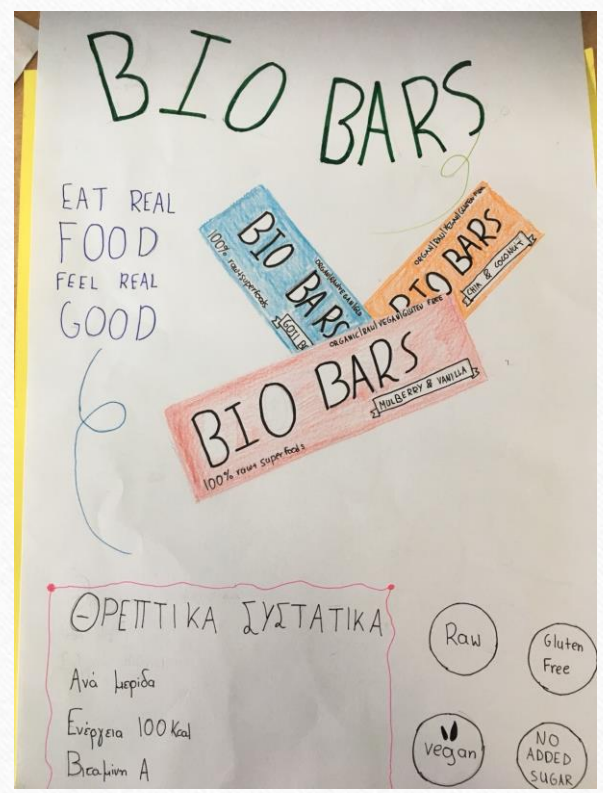 BIO BARS
EAT REAL
FOOD
FEEL REAL
GOOD
BIO BARS
100% raw superfoods
ORGANIC|RAW|VEGAN|GLUTEN FREE
BIO BARS
CHIA & COCONUT
ORGANIC|RAW|VEGAN|GLUTEN FREE
BIO BARS
MULBERRY & VANILLA
100% raw superfoods
ΘΡΕΠΤΙΚΑ ΣΥΣΤΑΤΙΚΑ
Ανά μερίδα
Ενέργεια 100 Kcal
Βιταμίνη Α
Raw
Gluten
Free
vegan
NO
ADDED
SUGAR